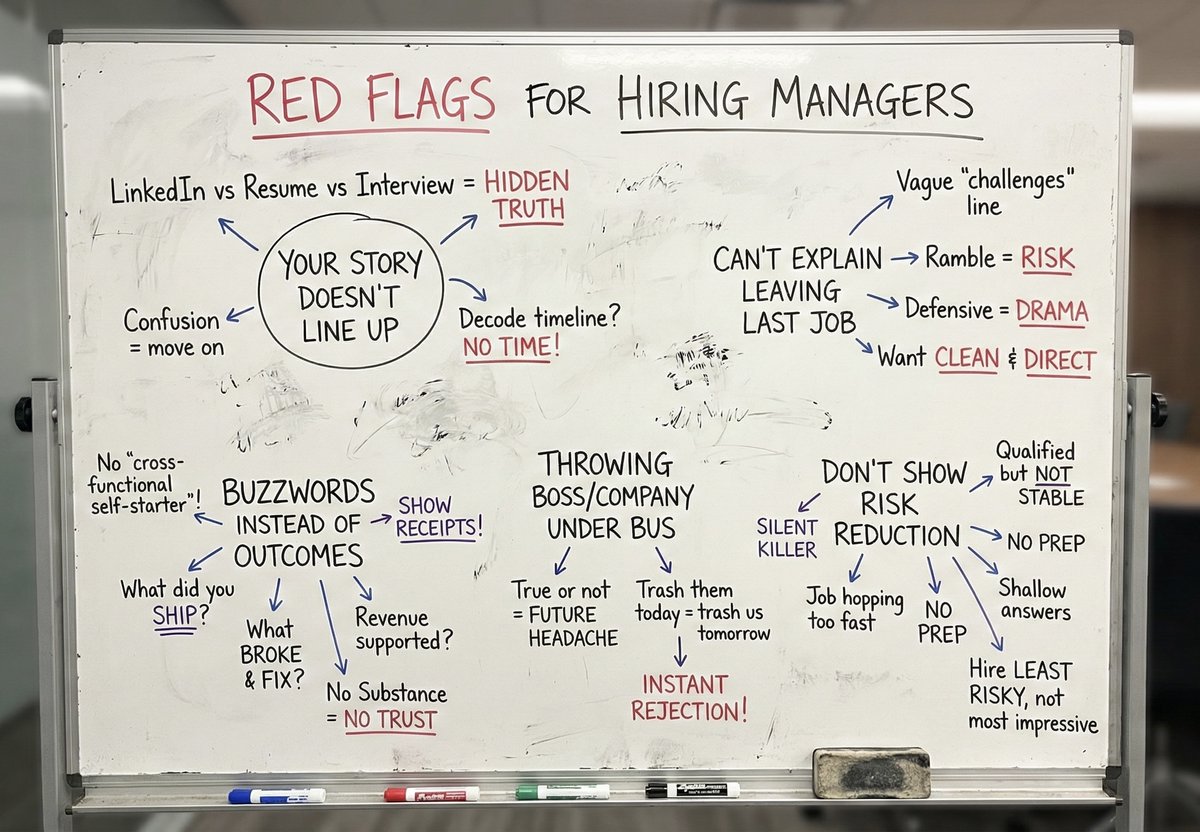 RED FLAGS FOR HIRING MANAGERS
LinkedIn vs Resume vs Interview = HIDDEN
TRUTH
YOUR STORY
DOESN'T
LINE UP
Confusion
= move on
Decode timeline?
NO TIME!
CAN'T EXPLAIN
LEAVING
LAST JOB
Vague "challenges"
line
Ramble = RISK
Defensive = DRAMA
Want CLEAN & DIRECT
BUZZWORDS
INSTEAD OF
OUTCOMES
No "cross-
functional
self-starter"!
SHOW
RECEIPTS!
What did you
SHIP?
What
BROKE
& FIX?
Revenue
supported?
No Substance
= NO TRUST
THROWING
BOSS/COMPANY
UNDER BUS
True or not
= FUTURE
HEADACHE
Trash them
today = trash us
tomorrow
INSTANT
REJECTION!
DON'T SHOW
RISK
REDUCTION
SILENT
KILLER
Qualified
but NOT
STABLE
NO PREP
Shallow
answers
Job hopping
too fast
NO
PREP
Hire LEAST
RISKY, not
most impressive